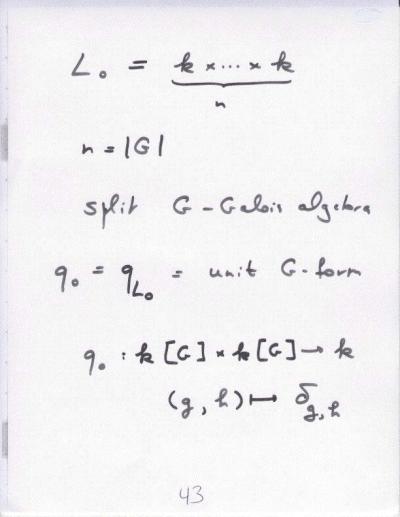 L₀ = k × ··· × k
n
n = |G|
split G-Galois algebra
q₀ = q_{L₀} = unit G-form
q₀ : k[G] × k[G] → k
(g, h) ↦ δ_{g,h}
43